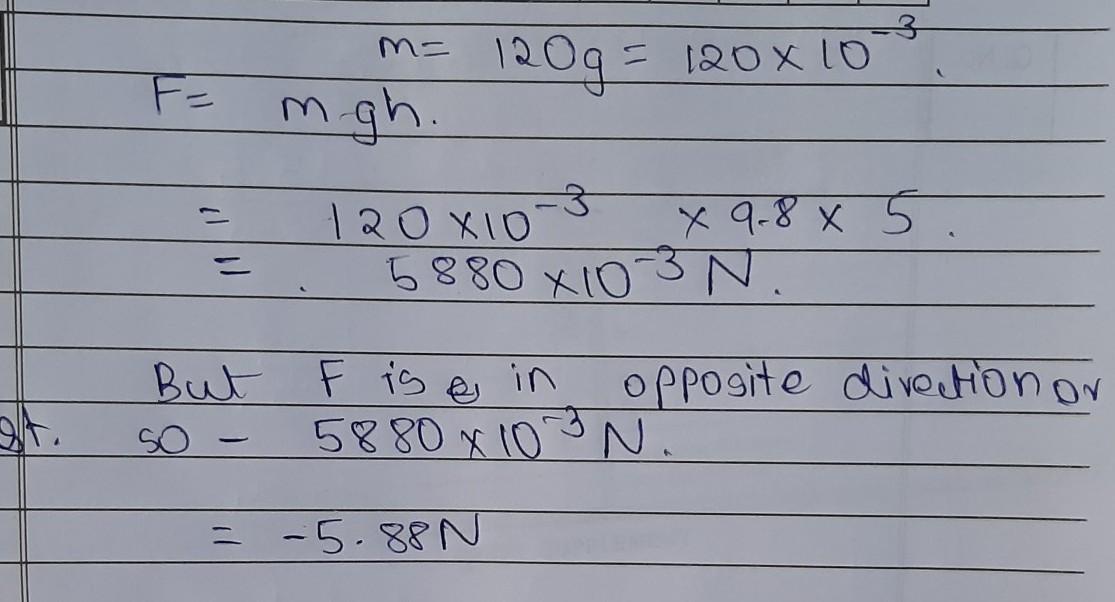 m= 120g = 120×10⁻³.
F= mgh.
= 120×10⁻³ × 9.8 × 5.
= 5880×10⁻³ N.
But F is in opposite direction or
so - 5880×10⁻³ N.
= -5.88N